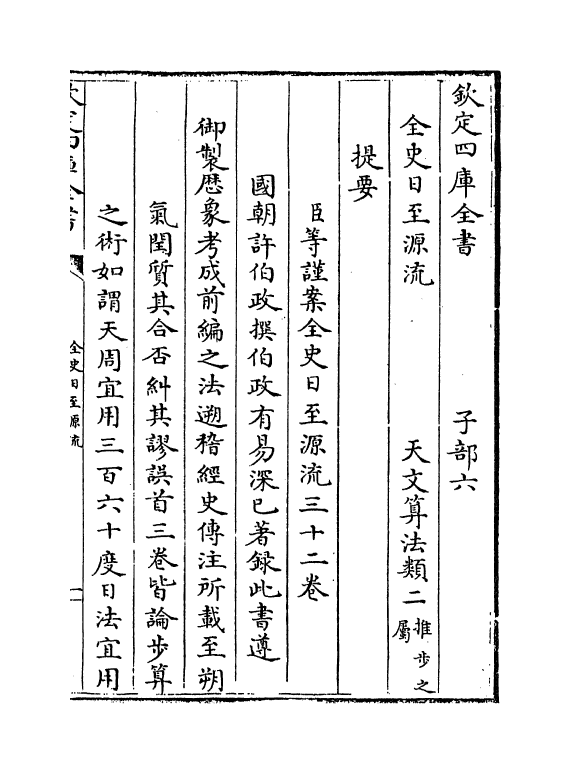 欽定四庫全書　子部六
全史日至源流　天文算法類二推步之屬
提要
臣等謹案全史日至源流三十二卷
國朝許伯政撰伯政有易深已著録此書遵
御製厯象考成前編之法遡稽經史傳注所載至朔
氣閏質其合否糾其謬誤首三卷皆論步算
之術如謂天周宜用三百六十度日法宜用
全史日至源流　一